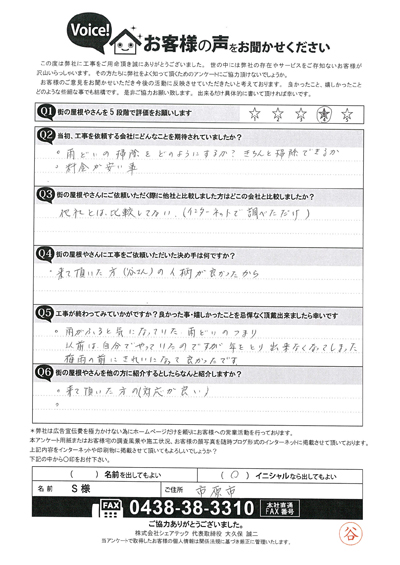 Voice!
お客様の声をお聞かせください
この度は弊社に工事をご用命頂き誠にありがとうございました。世の中には弊社の存在やサービスをご存知ないお客様が
沢山いらっしゃいます。その方たちに弊社をよく知って頂くためのアンケートにご協力頂けないでしょうか。
お客様のご意見をお聞かせいただき今後の活動に反映させていただきたいと考えております。良かったこと、嬉しかったこと
どのような些細な事でも結構です。是非ご協力お願い致します。出来るだけ具体的に書いて頂ければ幸いです。
Q1 街の屋根やさんを5段階で評価をお願いします ☆ ☆ ☆ ☆ ☆
Q2 当初、工事を依頼する会社にどんなことを期待されていましたか?
・雨どいの掃除をどのようにするか? きちんと掃除できるか
・料金が安い事
Q3 街の屋根やさんにご依頼いただく際に他社と比較しました方はどこの会社と比較しましたか?
他社とは比較してない、(インターネットで調べただけ)
Q4 街の屋根やさんに工事をご依頼いただいた決め手は何ですか?
・来て頂いた方(谷さん)の人柄が良かったから
Q5 工事が終わってみていかがですか?良かった事・嬉しかったことを忌憚なく頂戴出来ましたら幸いです
・雨がふると気になっていた雨どいのつまり
以前は自分でやっていたのですが年をとり出来なくなってしまった
梅雨の前にきれいになって良かったです
Q6 街の屋根やさんを他の方に紹介するとしたらなんと紹介しますか?
・来て頂いた方の(対応が良い)
。
*弊社は広告宣伝費を極力かけない為にホームページだけを頼りにお客様への営業活動を行っております。
本アンケート用紙またはお客様宅の調査風景や施工状況、お客様の顔写真を随時ブログ形式のインターネットに掲載させて頂いております。
上記内容をインターネットや印刷物に掲載させて頂いてもよろしいでしょうか?
下記の中から〇印をお付下さい。
( )名前を出してもよい
(〇)イニシャルなら出してもよい
名前 S様
ご住所 市原市
FAX 0438-38-3310 本社直通FAX番号
ご協力ありがとうございました。
株式会社シェアテック 代表取締役 大久保 誠二
当アンケートで取得したお客様の個人情報は関係法規に基づき厳正に管理いたします。
谷